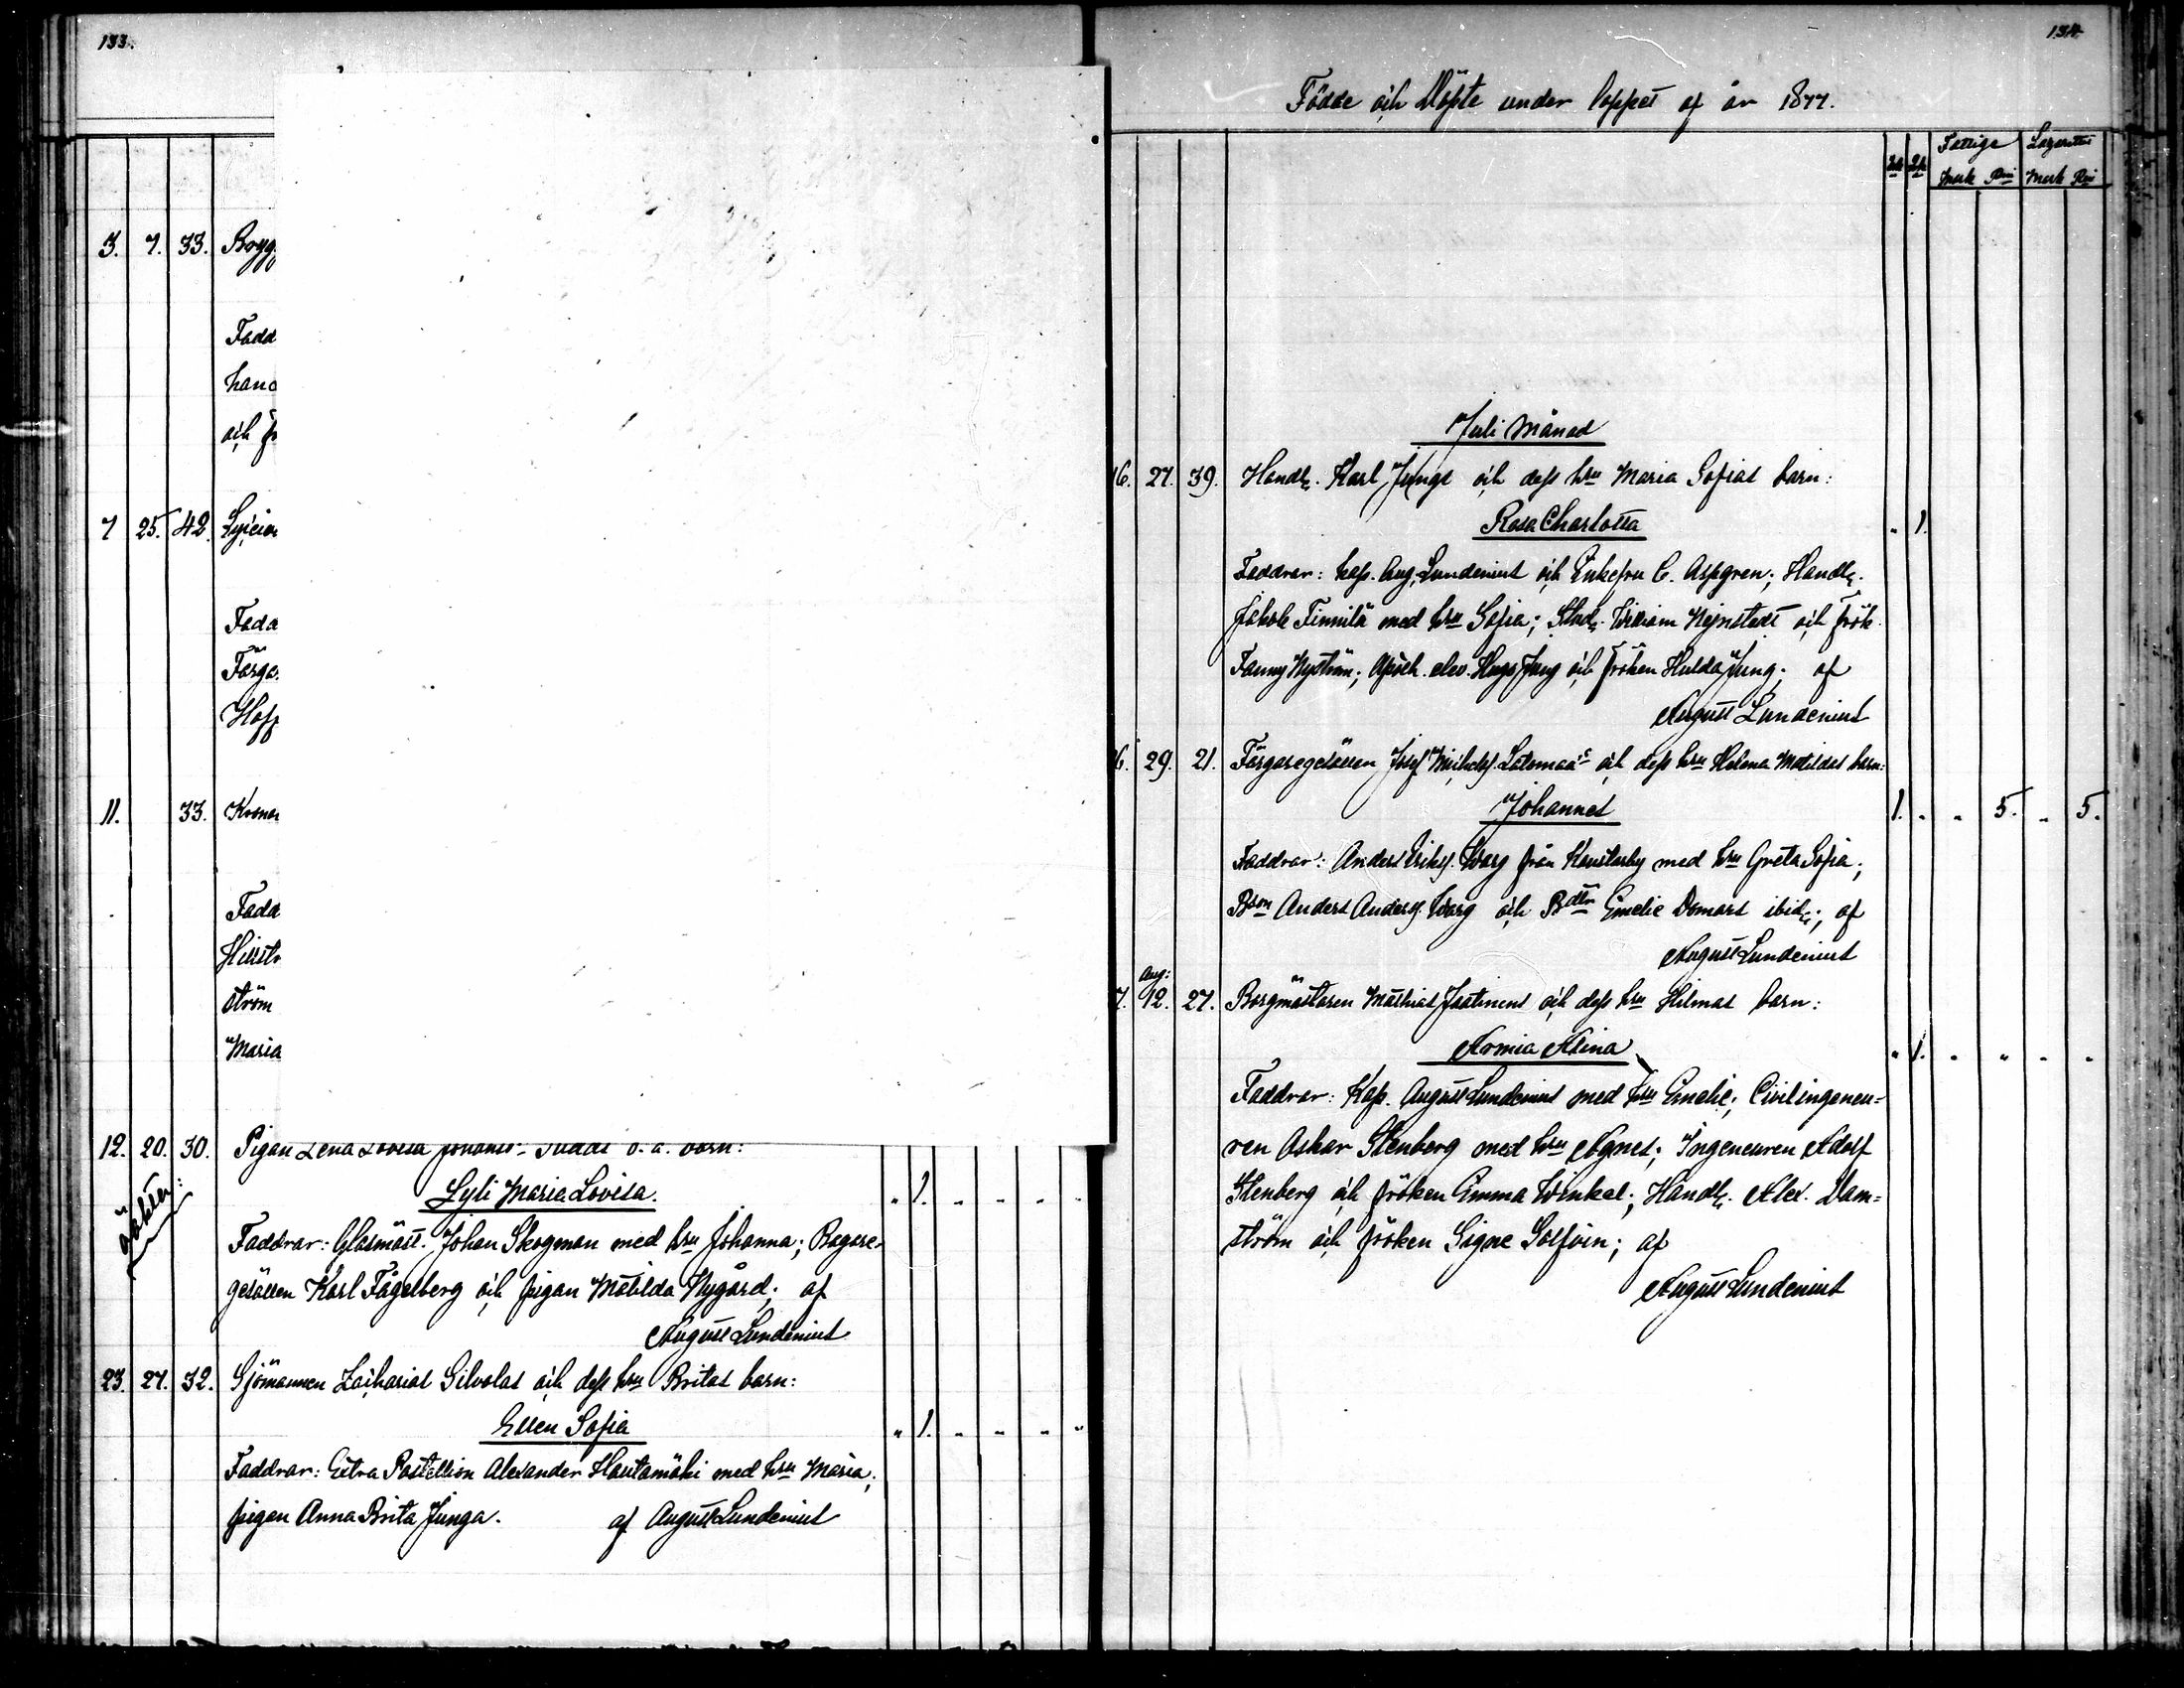 133.
3. 7. 33. Bygg
Fadd
hand
och fr
7 25. 42. Lycien
Fadd
Färga
Hopp
11. 33. Krono
Fadd
Hellstr
ström
Maria
12. 20. 30. Pigan Lena Lovisa o. ä. barn:
oäkten:
Lyli Maria Lovisa. " 1. " " " "
Faddrar: Glasmäst. Johan Skogman med hru Johanna; Bagare-
gesällen Karl Fågelberg och pigan Matilda Nygård; af
August Lundenius
23. 27. 32. Sjömannen Zacharias Silvolas och dess hru Britas barn:
Ellen Sofia " 1. " " " "
Faddrar: Extra Postellion Alexander Hautamäki med hru Maria;
pigan Anna Brita Junga. af August Lundenius
134
Födde och Döpte under loppet af år 1877.
Fattige Lazarettet
Mark Pni Mark Pni
Juli Månad
16. 27. 39. Handl. Karl Jungs och dess hru Maria Sofias barn:
Rosa Charlotta " 1.
Faddrar: kap. Aug. Lundenius och Enkefru C. Aspgren; Handl.
Jakob Finnilä med hru Sofia; Stud. William Hejnstedt och frök.
Fanny Nyström; Apoth. elev. Hugo Jung och fröken Hulda Jung; af
August Lundenius
6. 29. 21. Färgaregesällen Josef Michelss. Latomaas och dess hru Helena Matildas barn:
Johannes 1. " " 5. " 5.
Faddrar: Anders Eriks. Warg från Kaustarby med hru Greta Sofia;
Bson Anders Anderss. Warg och Bdtr Emelie Domars ibid.; af
August Lundenius
Aug:
7. 12. 27. Borgmästaren Mathias Jaatinens och dess hru Hilmas barn:
Armia Alina " 1. " " " "
Faddrar: Kap. August Lundenius med hru Emelie; Civilingeneu-
ren Oskar Stenberg med hru Agnes; Ingeneuren Adolf
Stenberg och fröken Emma Winkel; Handl. Alex. Dam-
ström och fröken Signe Solfvin; af
August Lundenius